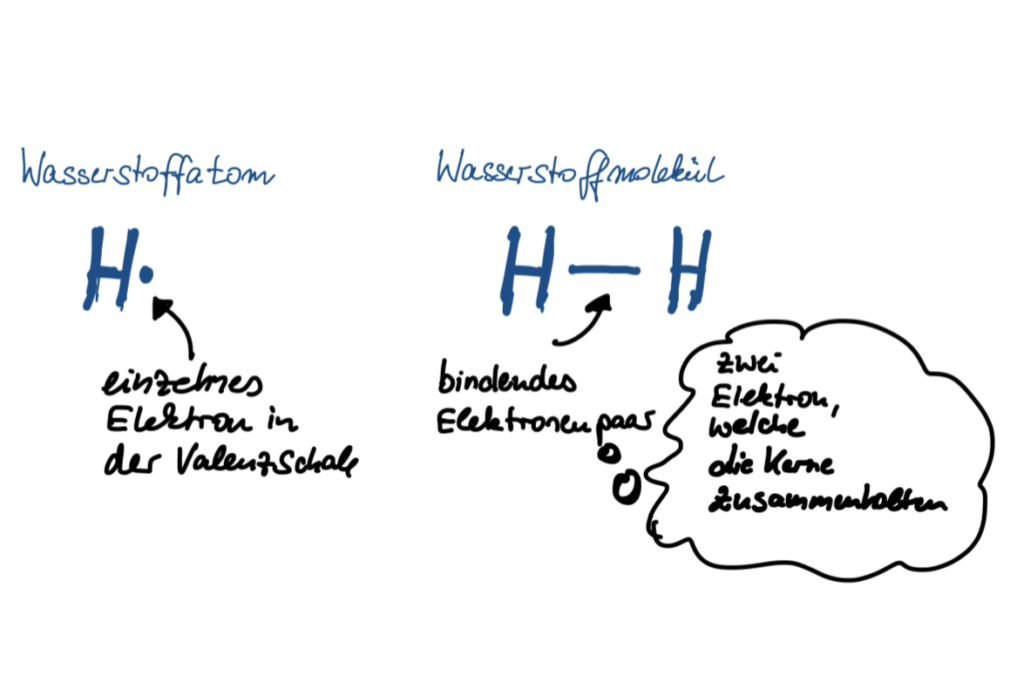 Wasserstoffatom
H·
einzelnes
Elektron in
der Valenzschale
Wasserstoffmolekül
H — H
bindendes
Elektronenpaar
zwei
Elektron,
welche
die Kerne
zusammenhalten